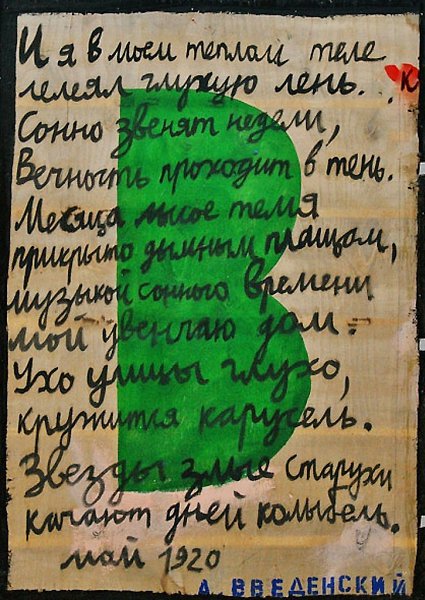 И я в моем теплом теле
лелеял глухую лень.
К
Сонно звенят недели,
Вечность проходит в тень.
Месяца лысое темя
прикрыто дымным плащом,
музыкой сонного времени
мой увенчаю дом.
Ухо улицы глухо,
кружится карусель.
Звезды злые старухи
качают дней колыбель.
май 1920
А. ВВЕДЕНСКИЙ
В